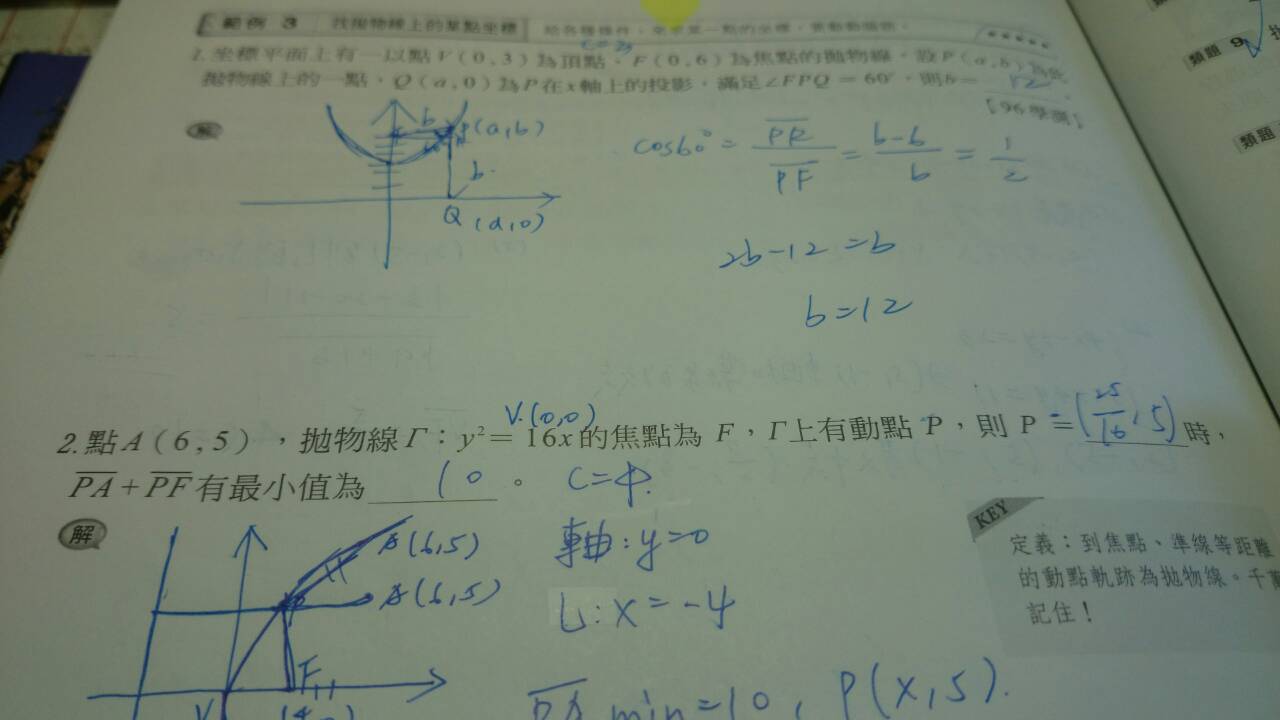 範例 3 找拋物線上的某點坐標
類題 9
c=3
1. 坐標平面上有一以點V(0,3)為頂點、F(0,6)為焦點的拋物線。設P(a,b)為此
拋物線上的一點，Q(a,0)為P在x軸上的投影，滿足∠FPQ=60°，則b= 12
【96學測】
類題
解
b P(a,b)
b
Q (a,0)
cos60° = PR/PF = b-6/b = 1/2
2b-12=b
b=12
V(0,0)
2. 點A(6,5)，拋物線Γ：y²=16x的焦點為F，Γ上有動點P，則P=(25/16,5)時，
PA+PF有最小值為 10 。 c=4
解
A(6,5)
A(6,5)
F
V
軸:y=0
L:x=-4
PA min=10, P(x,5).
KEY
定義：到焦點、準線等距離
的動點軌跡為拋物線。千萬
記住！